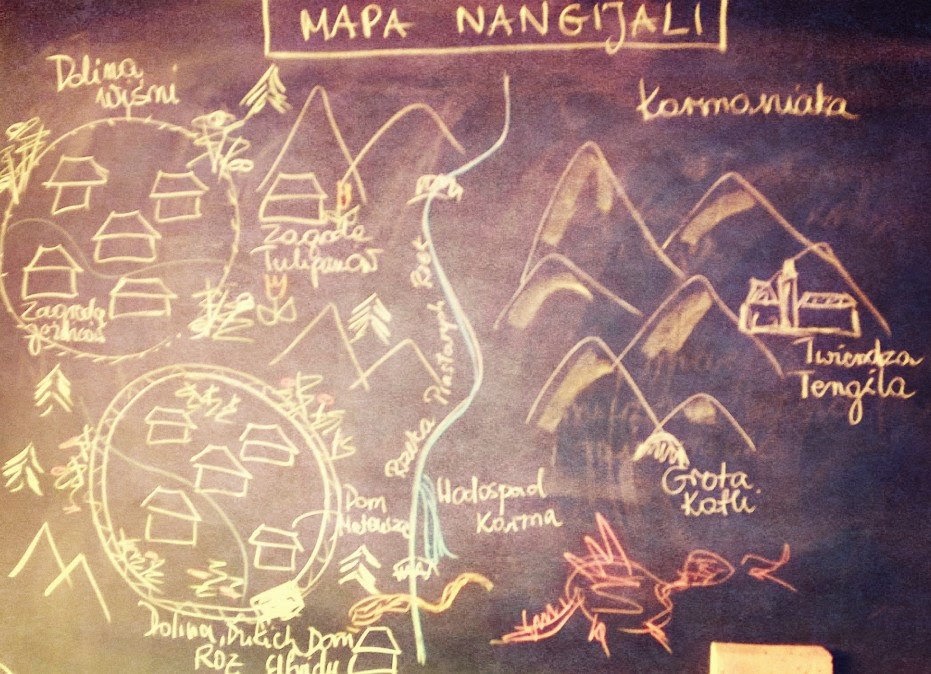 MAPA NANGIJALI
Dolina
Wiśni
Karmaniaka
Zagroda
Tulipanów
Zagroda
Jeźdźców
Rzeka Prastarych Rzek
Twierdza
Tengila
Grota
Katli
Wodospad
Karma
Dom
Mateusza
Dolina Dzikich
Róż
Dom
Elfridy